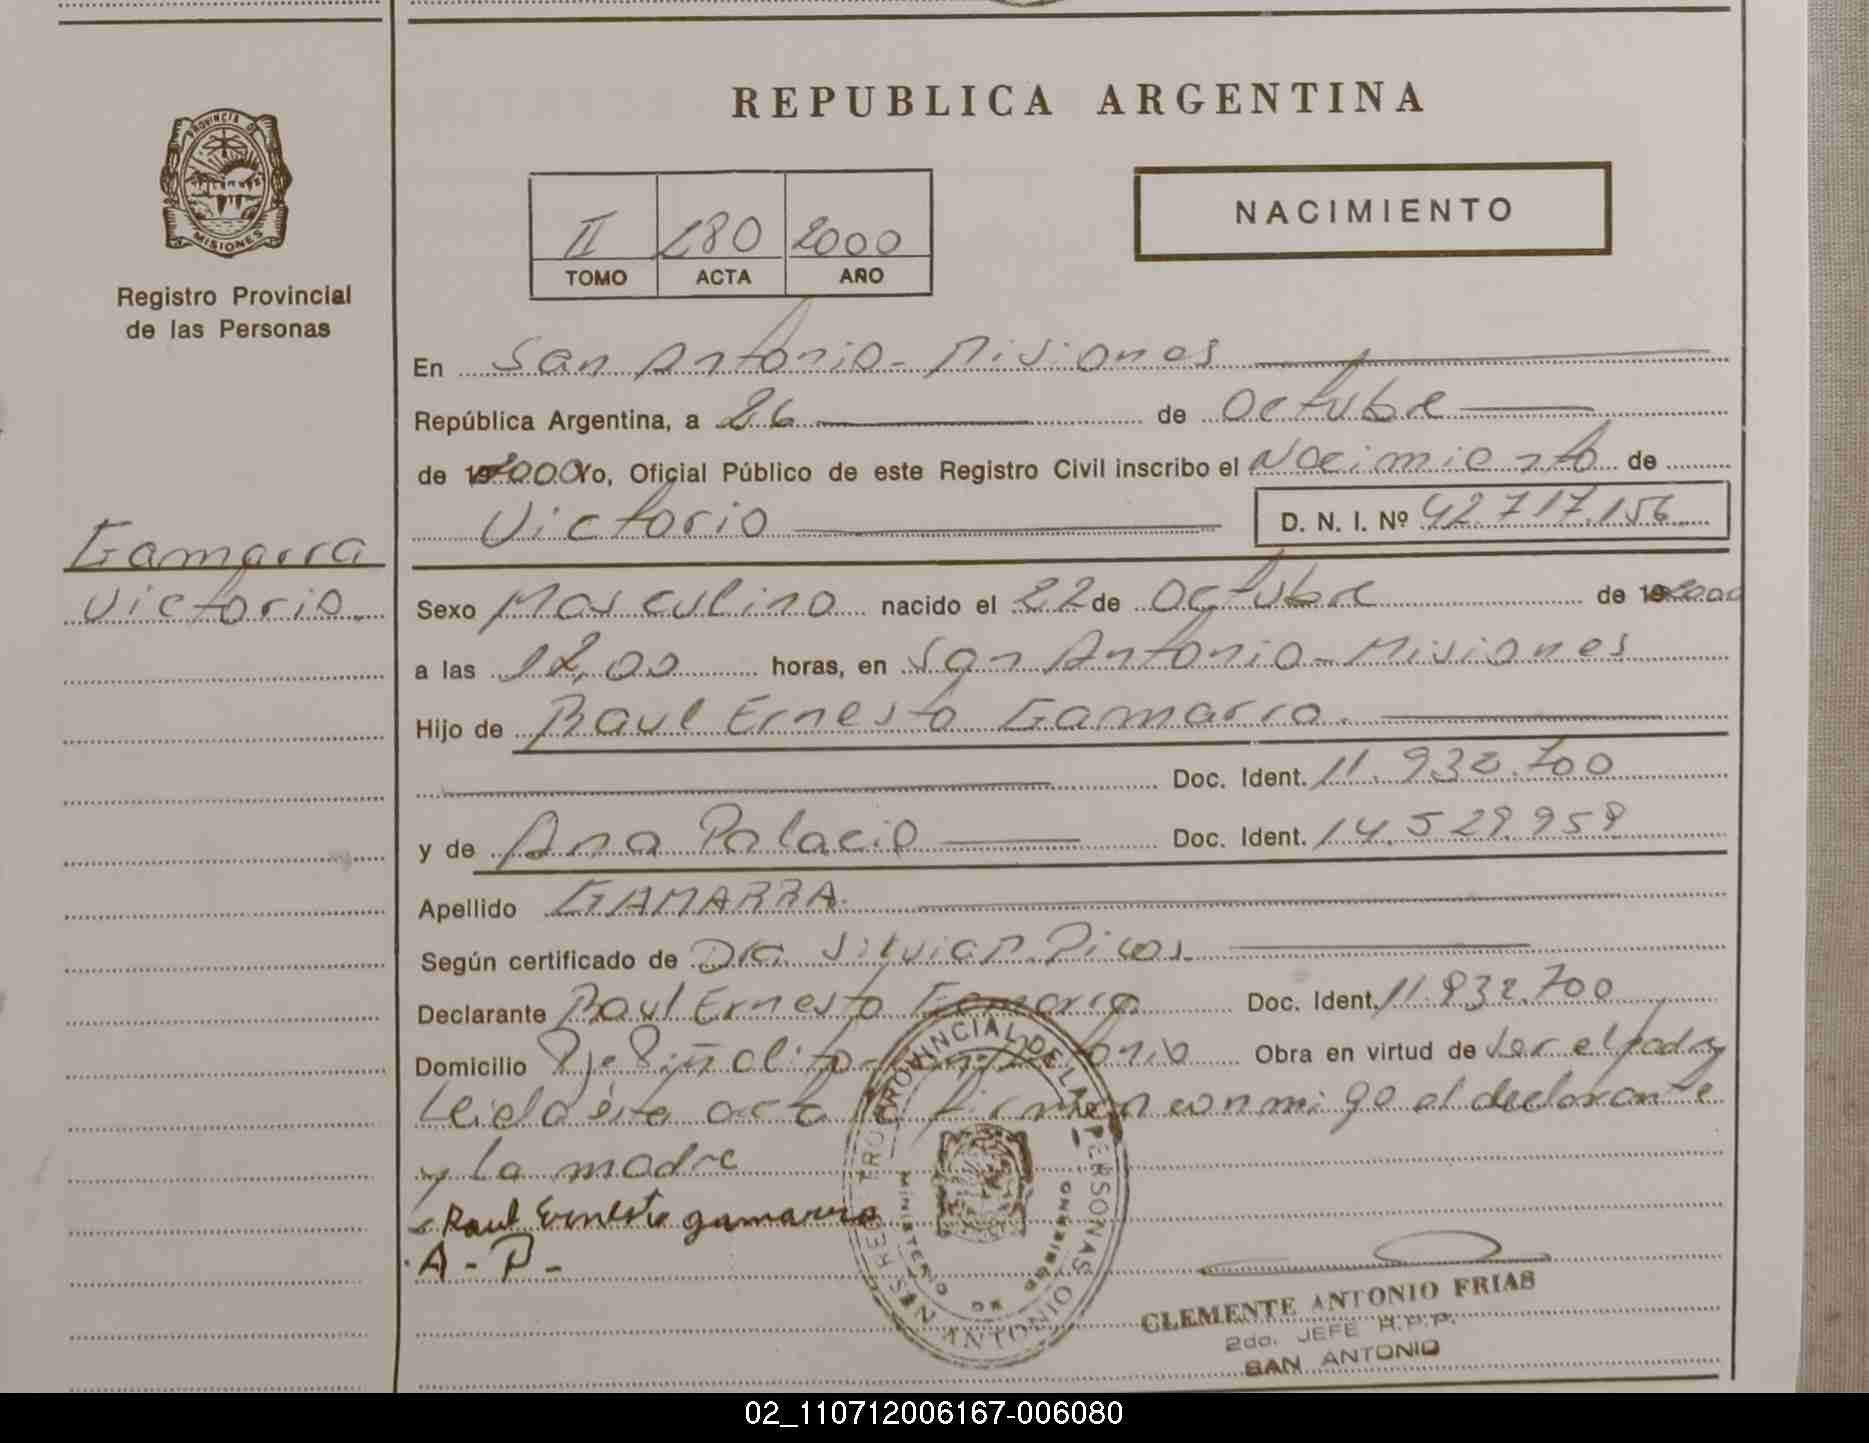 REPUBLICA ARGENTINA
PROVINCIA DE
MISIONES
Registro Provincial
de las Personas
NACIMIENTO
II 180 2000
TOMO ACTA AÑO
En San Antonio - Misiones
República Argentina, a 26 de Octubre
de 2000 Yo, Oficial Público de este Registro Civil inscribo el Nacimiento de
Victorio D. N. I. Nº 42.717.156
Gamarra
Victorio.
Sexo Masculino nacido el 22 de Octubre de 2000
a las 12,00 horas, en San Antonio - Misiones
Hijo de Raul Ernesto Gamarra.
Doc. Ident. 11.932.700
y de Ana Palacio Doc. Ident. 14.529.959
Apellido GAMARRA.
Según certificado de Dra.
Declarante Raul Ernesto Gamarra Doc. Ident. 11.932.700
Domicilio Pje Piñalito Obra en virtud de ser el padre
Leida ésta acta la firman conmigo el declarante
y la madre
Raul Ernesto gamarra
A - P -
PROVINCIAL DE LAS PERSONAS
MINISTERIO DE GOBIERNO
SAN ANTONIO
CLEMENTE ANTONIO FRIAS
2do. JEFE R.P.P.
SAN ANTONIO
02_110712006167-006080